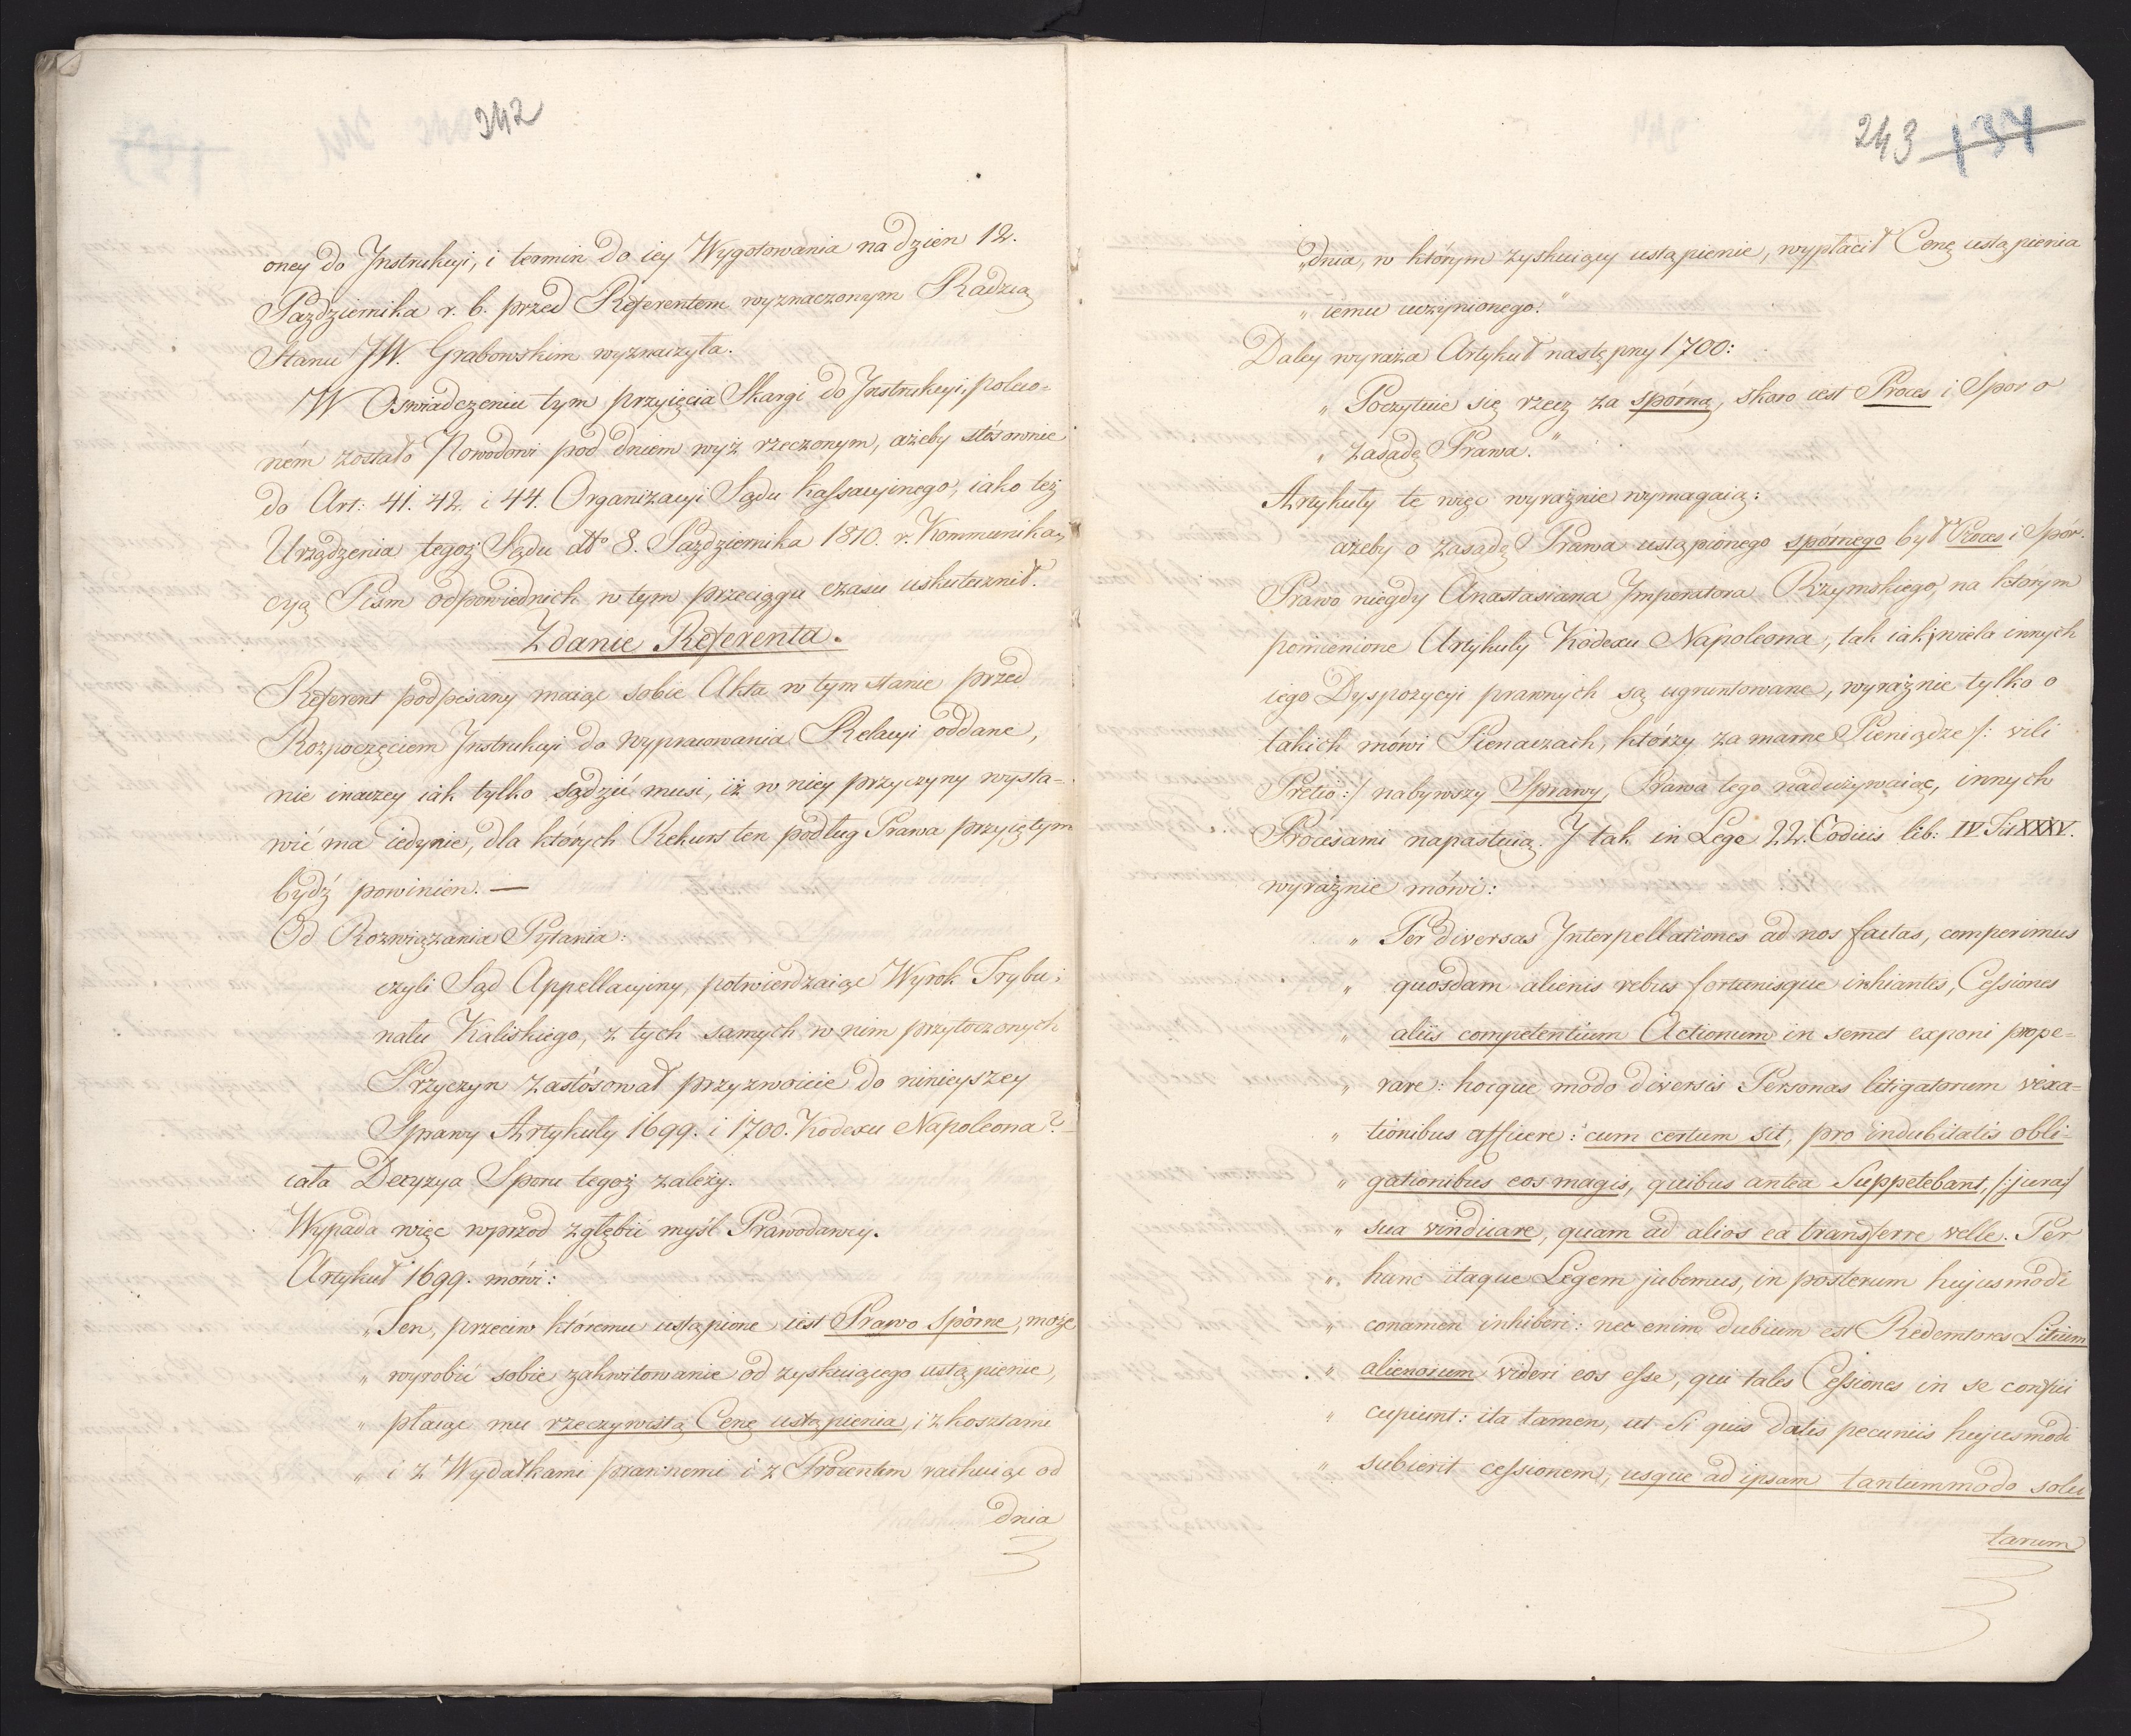 242
oney do Instrukcyi, i termin do iey Wygotowania na dzien 12.
Pazdziernika r. b. przed Referentem wyznaczonym Radzcą
Stanu JW. Grabowskim wyznaczyła.
W Oswiadczeniu tym przyięcia Skargi do Instrukcyi, poleco-
ném zostało Powodowi pod dniem wyż rzeczonym, ażeby stósownie
do Art: 41. 42. i 44. Organizacyi Sądu Kassacyinego, iako też
Urządzenia tegoż Sądu dtto 8. Pazdziernika 1810. r. Kommunika-
cyą Pism odpowiednich w tym przeciągu czasu uskutecznił.
Zdanie Referenta.
Referent podpisany maiąc sobie Akta w tym stanie przed
Rozpoczęciem Instrukcyi do wypracowania Relacyi oddane,
nie inaczey iak tylko sądzić musi, iż w niey przyczyny wysta-
wić ma iedynie, dla ktorych Rekurs ten podług Prawa przyiętym
bydź powinien. —
Od Rozwiązania Pytania:
czyli Sąd Appellacyiny, potwierdzaiąc Wyrok Trybu-
nału Kaliskiego, z tych samych w nim przytoczonych
Przyczyn zastósował przyzwoicie do ninieyszey
Sprawy Artykuły 1699. i 1700. Kodexu Napoleona?
cała Decyzya Sporu tegoż zależy.
Wypada więc wprzod zgłębić myśl Prawodawcy.
Artykuł 1699. mówi:
„Ten, przeciw któremu ustąpione iest Prawo Spórne, może
„ wyrobić sobie zakwitowanie od zyskuiącego ustąpienie,
„ płacąc mu rzeczywistą Cenę ustąpienia, i z kosztami
„ i z Wydatkami prawnemi i z Procentem rachuiąc od
dnia
243 137
„dnia, w którym zyskuiący ustąpienie, wypłacił Cenę ustąpienia
„ iemu uczynionego."
Daley wyraża Artykuł następny 1700:
„ Poczytuie się rzecz za spórną, skoro iest Proces i Spor o
„ zasadę Prawa."
Artykuły te więc wyraźnie wymagaią:
ażeby o zasadę Prawa ustąpionego spórnego był Proces i Spór.
Prawo niegdy Anastasiana Imperatora Rzymskiego, na ktorym
pomienione Artykuły Kodexu Napoleona, tak iak i wiela innych
iego Dyspozycyi prawnych są ugruntowane, wyraźnie tylko o
takich mówi Pieniaczach, którzy za marne Pieniądze /: vili
Pretio :/ nabywszy Sprawy, Prawa tego nadużywaiąc, innych
Procesami napastuią. I tak in Lege 22. Codicis lib: IV Tit XXXV.
wyraźnie mówi:
„ Per diversas Interpellationes ad nos factas, comperimus
„ quosdam alienis rebus fortunisque inhiantes, Cessiones
„ aliis competentium Actionum in semet exponi prope-
„ rare: hocque modo diversis Personas litigatorum vexa-
„ tionibus afficere: cum certum sit, pro indubitatis obli-
„ gationibus eos magis, quibus antea Suppetebant, /:jura:/
„ sua vindicare, quam ad alios ea transferre velle. Per
„ hanc itaque Legem jubemus, in posterum hujusmodi
„ conamen inhiberi: nec enim dubium est Redemtores Litium
„ alienarum videri eos esse, qui tales Cessiones in se confici
„ cupiunt: ita tamen, ut Si quis datis pecuniis hujusmodi
„ subierit cessionem, usque ad ipsam tantummodo solu
tarum